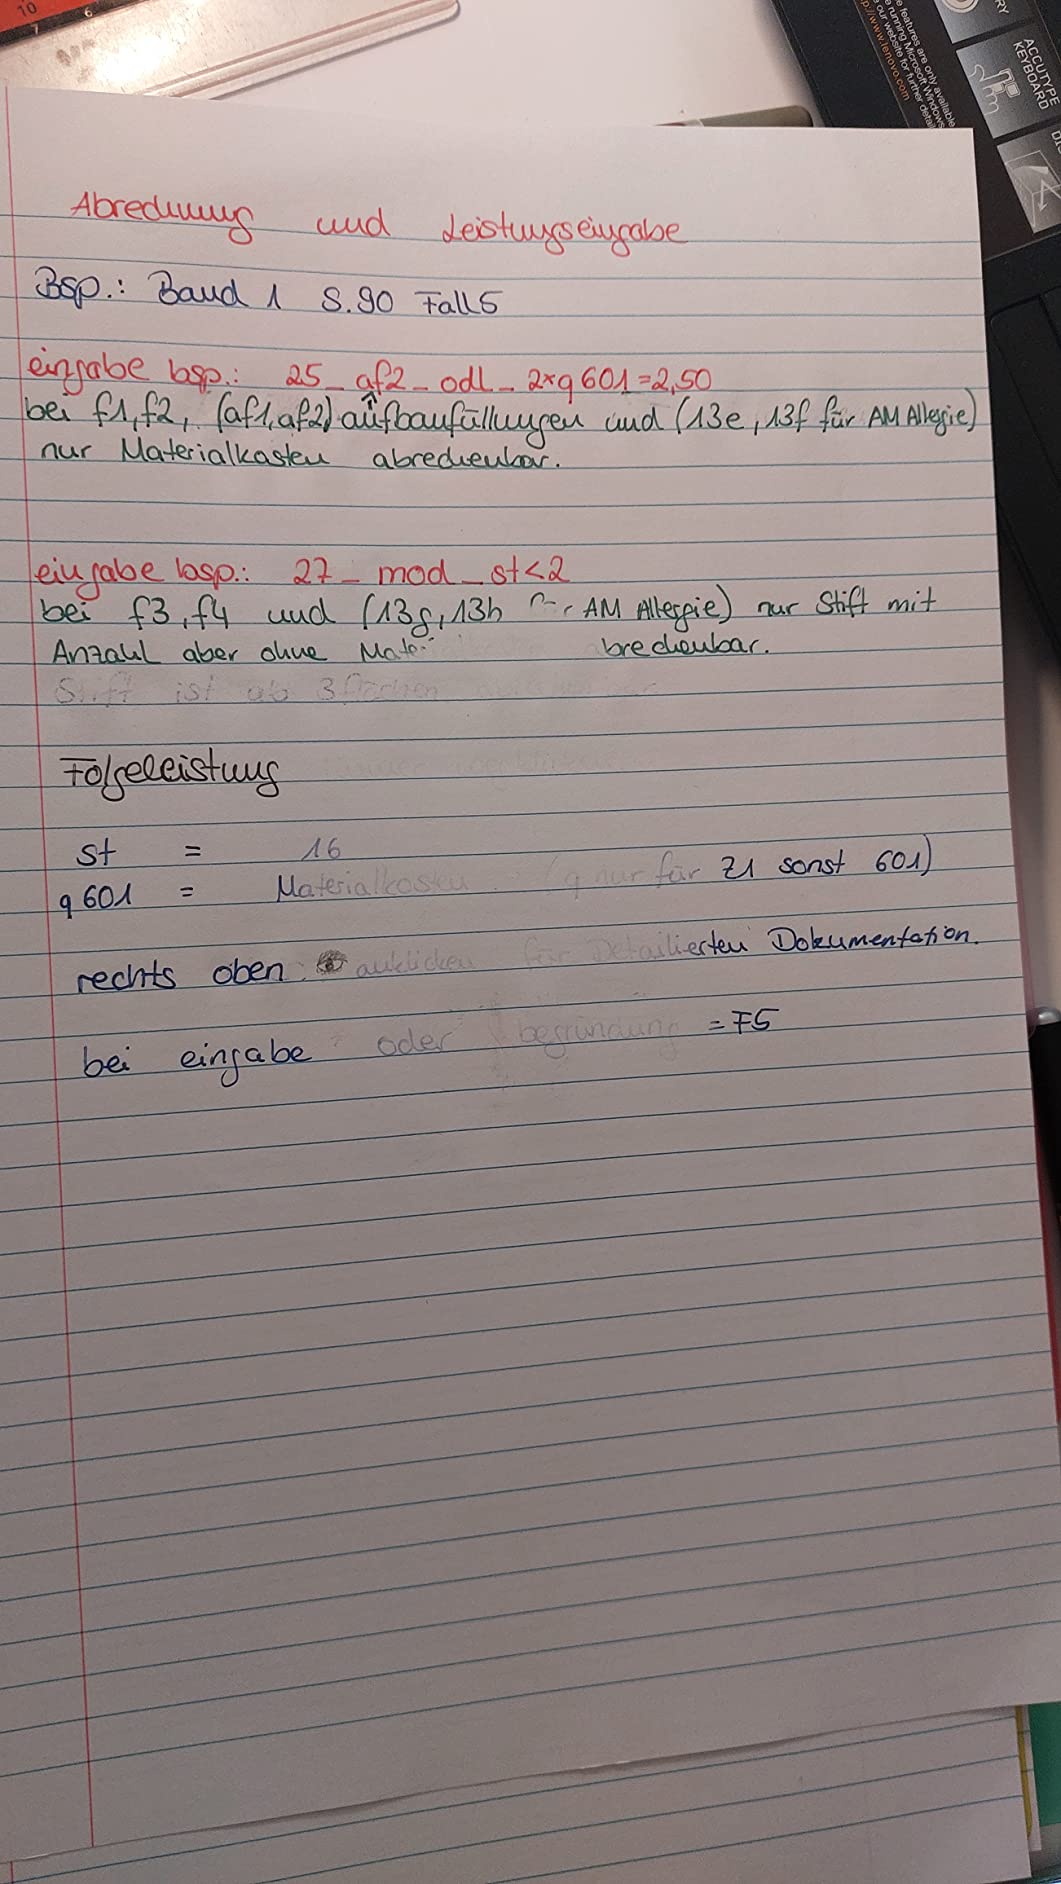 10
7 6
RY
ACCUTYPE
KEYBOARD
e features are only available
running Microsoft Windows
our website for further detail
p://www.lenovo.com
Abrechnung und Leistungseingabe
Bsp.: Band 1 S.90 Fall 5
eingabe bsp.: 25_af2_odl_2xq601=2,50
bei f1, f2, (af1, af2) aufbaufüllungen und (13e, 13f für AM Allergie)
nur Materialkosten abrechenbar.
eingabe bsp.: 27_mod_st<2
bei f3, f4 und (13g, 13h AM Allergie) nur Stift mit
Anzahl aber ohne Mate brechenbar.
Stift ist ab 3 flächen
Folgeleistung
st = 16
q601 = Materialkosten (q nur für Z1 sonst 601)
rechts oben anklicken für Detailierten Dokumentation.
bei eingabe oder begründung = F5